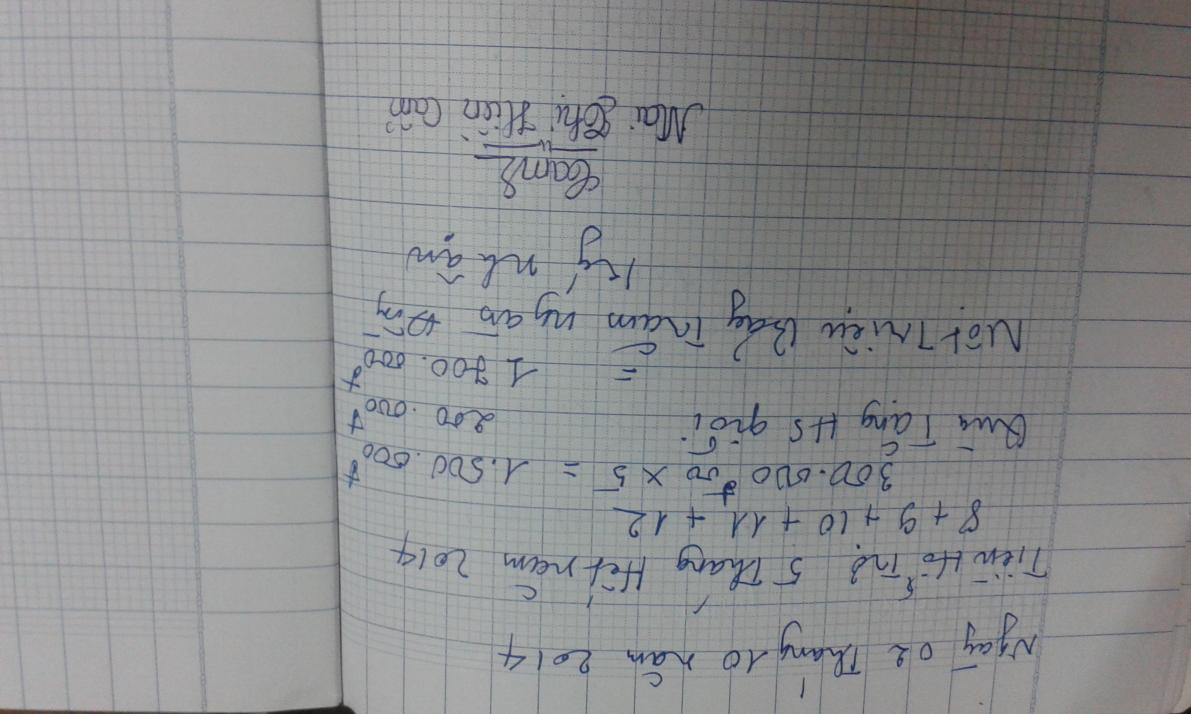 Ngày 02 Tháng 10 năm 2014
Tiền Hỗ Trợ 5 Tháng Hết năm 2014
8 + 9 + 10 + 11 + 12
300.000đ00 x 5 = 1.500.000đ00
Quà Tặng HS giỏi 200.000đ00
= 1.700.000đ00
Một Triệu Bảy Trăm ngàn Đồng
Ký nhận
Mai Thị Hiền Cam